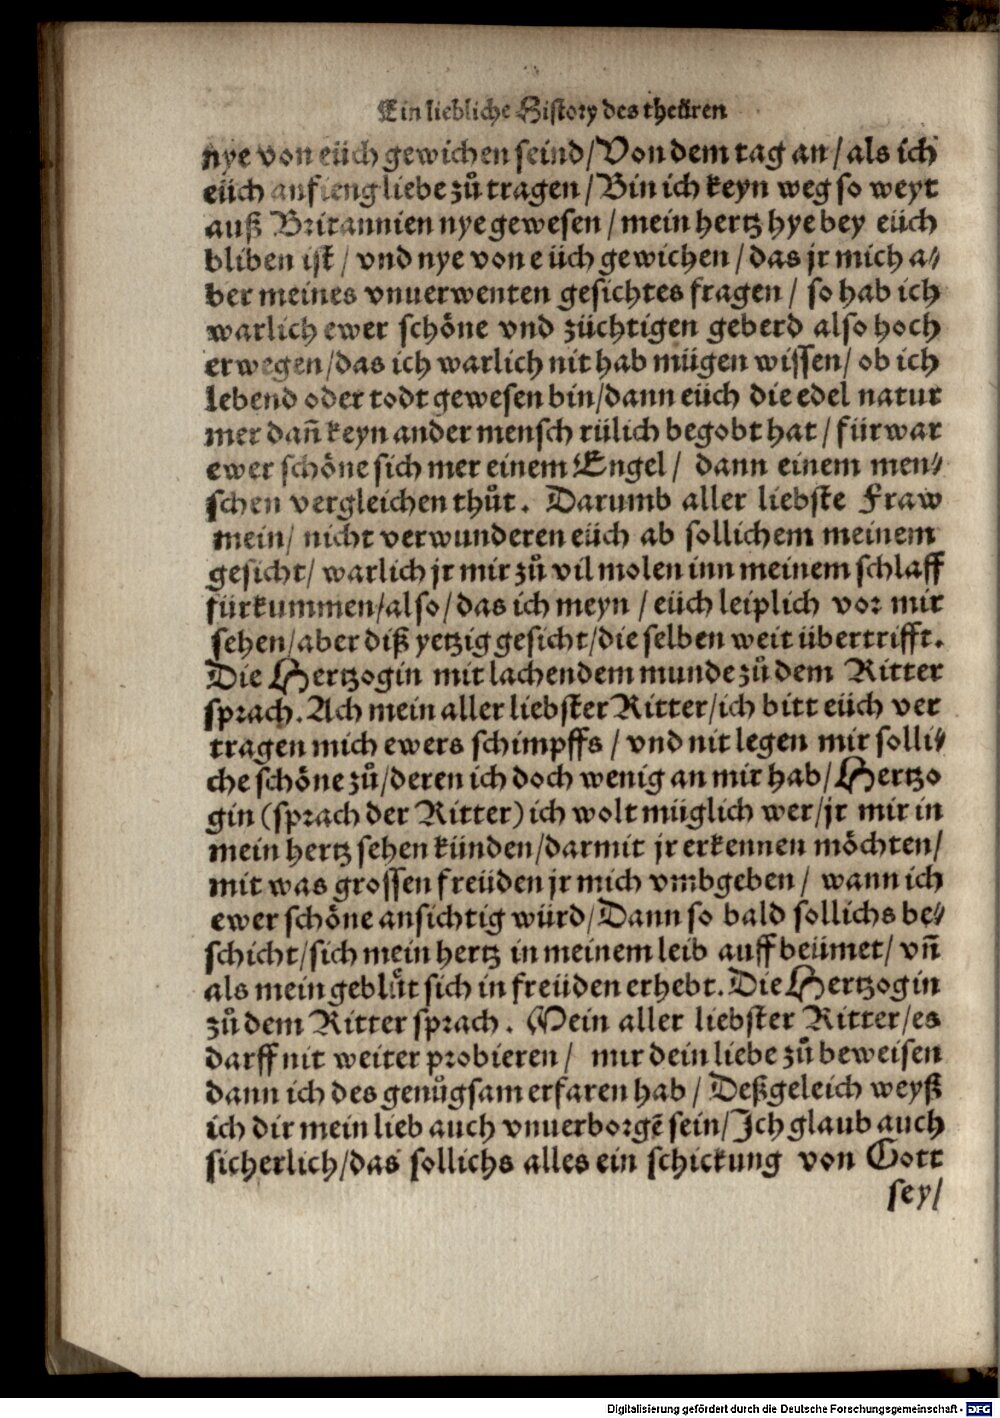 Ein liebliche History des theüren
nye von eüch gewichen seind/Von dem tag an/als ich
eüch anfieng liebe zů tragen/Bin ich keyn weg so weyt
auß Britannien nye gewesen/mein hertz hye bey eüch
bliben ist/vnd nye von eüch gewichen/das jr mich a⸗
ber meines vnuerwenten gesichtes fragen/so hab ich
warlich ewer schöne vnd züchtigen geberd also hoch
erwegen/das ich warlich nit hab mügen wissen/ob ich
lebend oder todt gewesen bin/dann eüch die edel natur
mer dañ keyn ander mensch rülich begobt hat/fürwar
ewer schöne sich mer einem Engel/dann einem men⸗
schen vergleichen thůt. Darumb aller liebste Fraw
mein/nicht verwunderen eüch ab sollichem meinem
gesicht/warlich jr mir zů vil molen inn meinem schlaff
fürkummen/also/das ich meyn/eüch leiplich vor mir
sehen/aber diß yetzig gesicht/die selben weit übertrifft.
Die Hertzogin mit lachendem munde zů dem Ritter
sprach. Ach mein aller liebster Ritter/ich bitt eüch ver
tragen mich ewers schimpffs/vnd nit legen mir solli⸗
che schöne zů/deren ich doch wenig an mir hab/Hertzo
gin (sprach der Ritter) ich wolt müglich wer/jr mir in
mein hertz sehen künden/darmit jr erkennen möchten/
mit was grossen freüden jr mich vmbgeben/wann ich
ewer schöne ansichtig würd/Dann so bald sollichs be⸗
schicht/sich mein hertz in meinem leib auff beümet/vñ
als mein geblůt sich in freüden erhebt. Die Hertzogin
zů dem Ritter sprach. Mein aller liebster Ritter/es
darff nit weiter probieren/mir dein liebe zů beweisen
dann ich des genůgsam erfaren hab/Deßgeleich weyß
ich dir mein lieb auch vnuerborgẽ sein/Ich glaub auch
sicherlich/das sollichs alles ein schickung von Gott
sey/
Digitalisierung gefördert durch die Deutsche Forschungsgemeinschaft - DFG